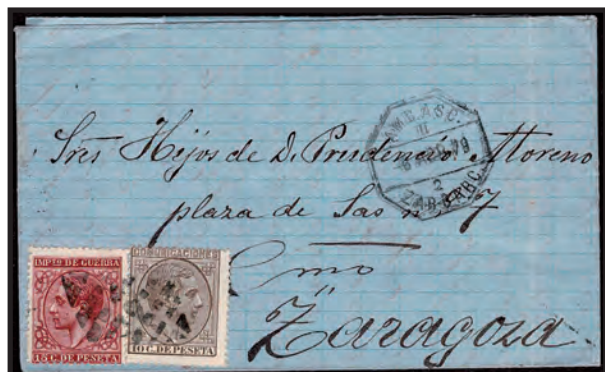 AMB. ASC.
III
79
2
ZAR-BARC.
Sres Hijos de D. Prudencio Moreno
plaza de Sas nº 7
Zaragoza.
IMPTO DE GUERRA
15 C. DE PESETA
COMUNICACIONES
10 C. DE PESETA